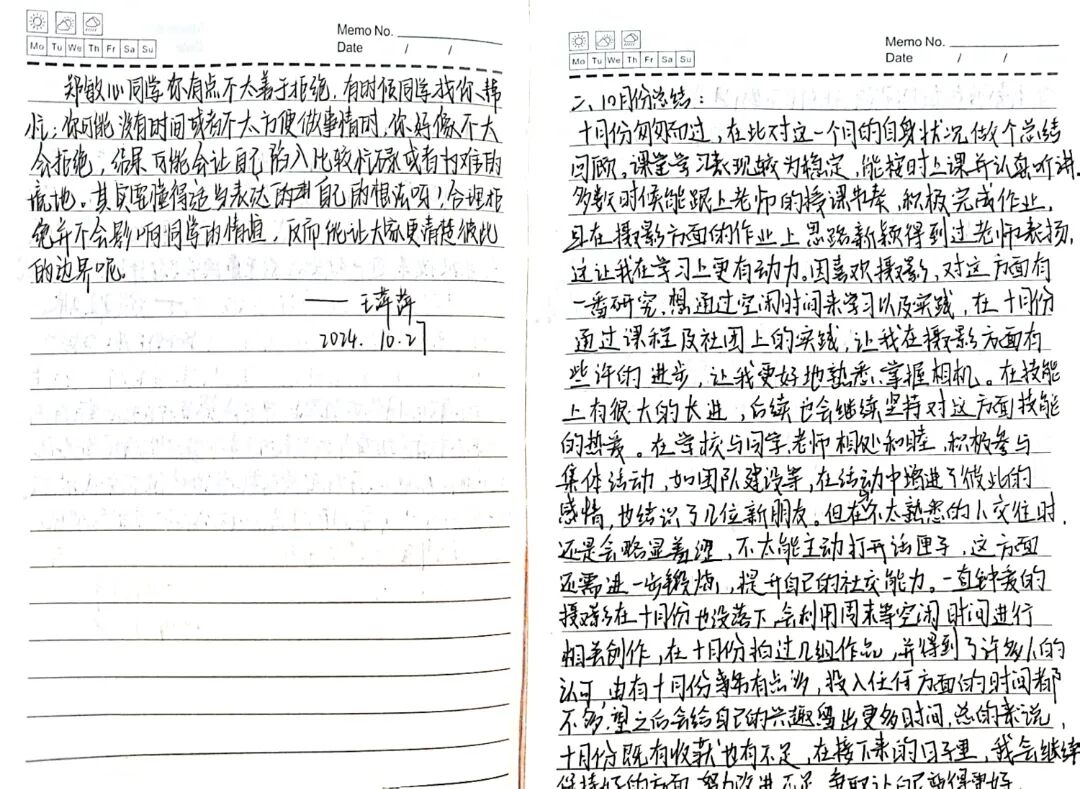 Memo No.
Mo Tu We Th Fr Sa Su
Date / /
郑敏心同学你有点不太善于拒绝,有时候同学找你帮
忙,你可能没有时间或者不太方便做事情时,你好像不太
会拒绝,结果可能会让自己陷入比较忙碌或者为难的
境地。其实要懂得适当表达的自己的想法呀!合理拒
绝并不会影响同学的情谊,反而能让大家更清楚彼此
的边界呢。
——王萍萍
2024.10.27
Memo No.
Mo Tu We Th Fr Sa Su
Date / /
二、10月份总结:
十月份匆匆而过,在此对这一个月的自身状况做个总结
回顾,课堂学习表现较为稳定,能按时上课并认真听讲.
多数时候能跟上老师的授课节奏,积极完成作业,
且在摄影方面的作业上思路新颖得到过老师表扬,
这让我在学习上更有动力。因喜欢摄影,对这方面有
一番研究.想通过空闲时间来学习以及实践,在十月份
通过课程及社团上的实践,让我在摄影方面有
些许的进步,让我更好地熟悉、掌握相机。在技能
上有很大的长进,后续也会继续坚持对这方面技能
的热爱。在学校与同学,老师相处和睦,积极参与
集体活动,如团队建设等,在活动中增进了彼此的
感情,也结识了几位新朋友。但在与不太熟悉的人交往时,
还是会略显羞涩,不太能主动打开话匣子,这方面
还需进一步锻炼,提升自己的社交能力。一直钟爱的
摄影在十月份也没落下,会利用周末等空闲时间进行
相关创作,在十月份拍过几组作品,并得到了许多人的
认可,由有十月份事务有点多,投入任何方面的时间都
不多,望之后会给自己的兴趣留出更多时间,总的来说,
十月份既有收获也有不足,在接下来的日子里,我会继续
保持好的方面,努力改进不足,争取让自己变得更好